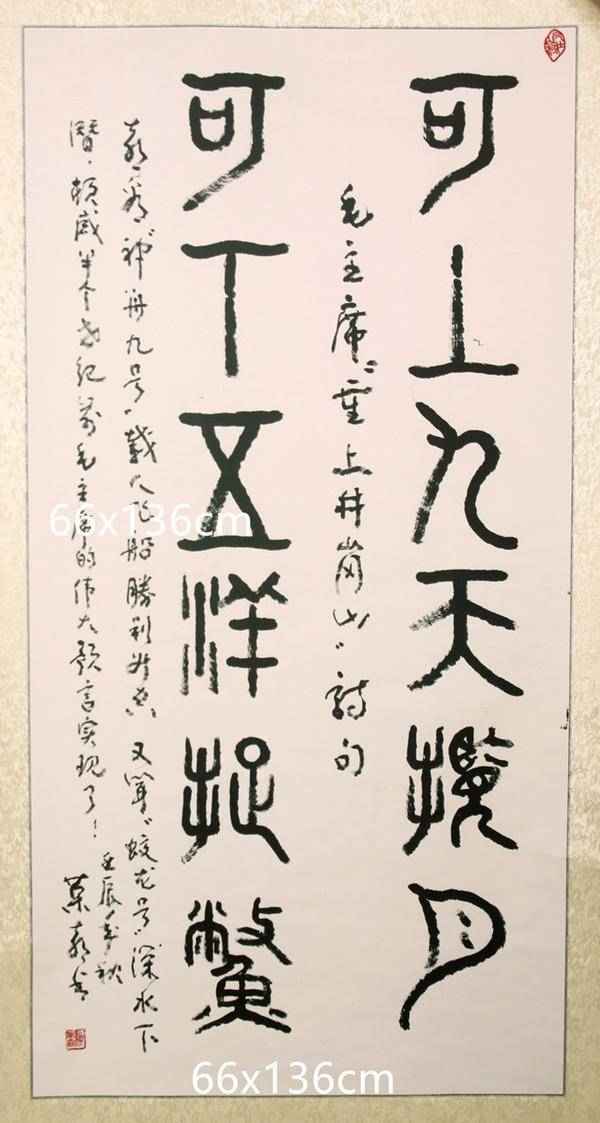 可上九天攬月
毛主席“重上井崗山”詩句
可下五洋捉鱉
“神舟九号”載人飞船勝利升空 又聞“蛟龙号”深水下
潛，頓感半个世紀前毛主席的伟大預言实现了！
壬辰年秋
66x136cm
66x136cm